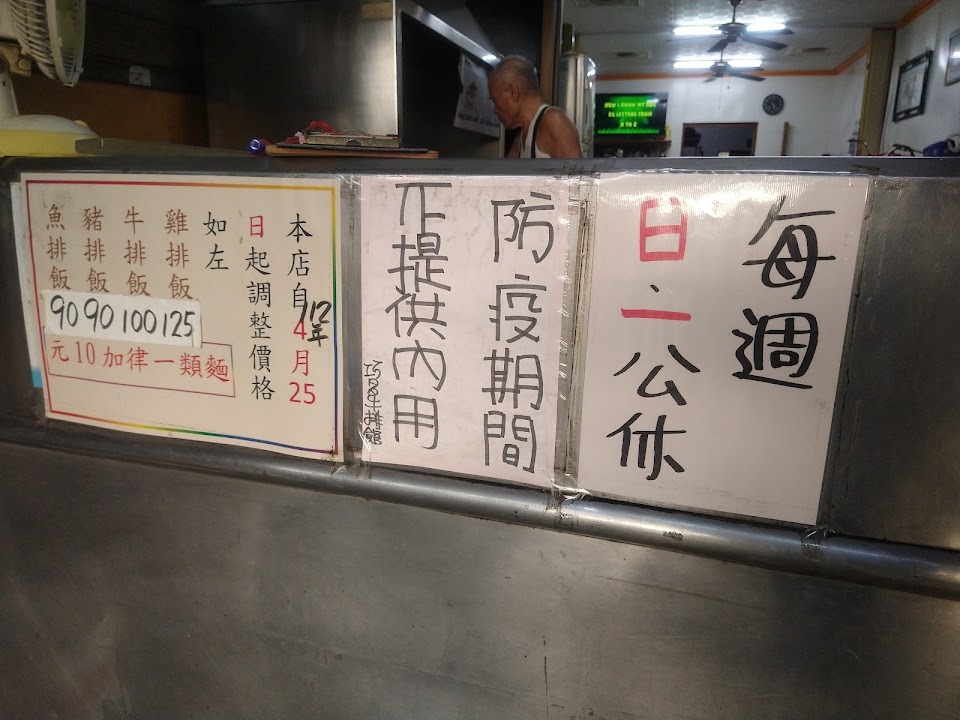 NOW I KNOW MY ABC
26 LETTERS FROM
A TO Z
每週
日、一公休
防疫期間
不提供內用
牛排館
本店自112年4月25
日起調整價格
如左
雞排飯 125
牛排飯 100
豬排飯 90
魚排飯 90
麵類一律加10元